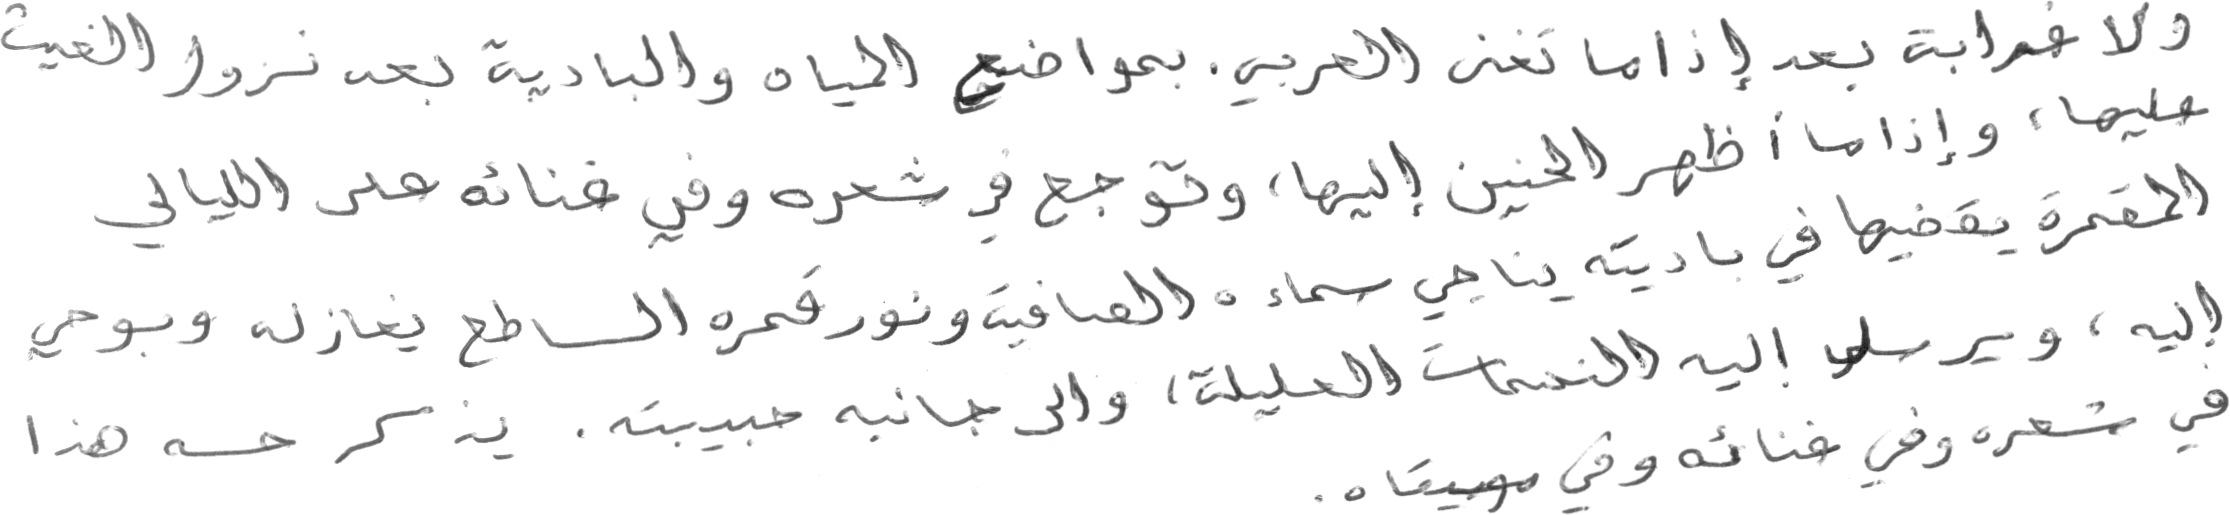 ولا غرابة بعد إذا ما تغنى العربي. بمواضع المياه والبادية بعد نزول الغيث
عليها، وإذا ما أظهر الحنين إليها، وتوجع في شعره وفي غنائه على الليالي
المقمرة يقضيها في باديته يناجي سماءه الصافية ونور قمره الساطع يغازله ويوحي
إليه، ويرسل إليه النسمات العليلة، والى جانبه حبيبته. يذكر حسه هذا
في شعره وفي غنائه وفي موسيقاه.